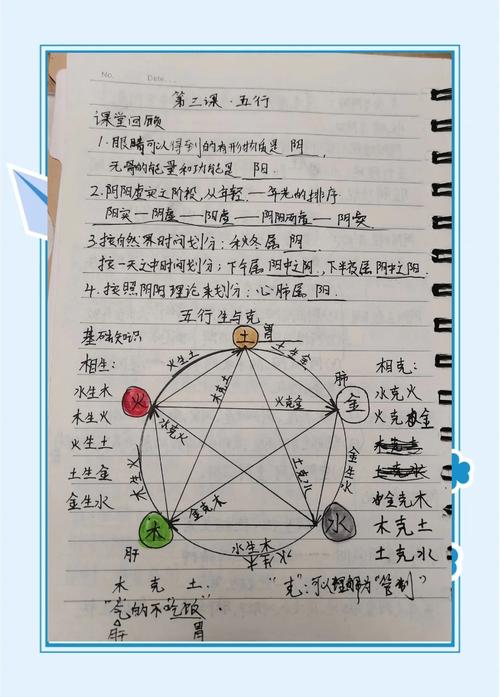 No.
Date...
第二课·五行
课堂回顾
1.眼睛可以得到的有形物质是 阴,
无骨的能量和功能是 阳.
2.阴阳虚实之阶投,从年轻—年老的排序
阳实—阴虚—阳虚—阴阳两虚—阴实
3.按自然界时间划分:秋冬属 阴.
按一天之中时间划分:下午属 阴中之阴,下半夜属 阴中之阳.
4.按照阴阳理论来划分:心肺属 阳.
五行生与克
基础知识
土 胃
火生土
土生金
相生:
相克:
水生木
木生火
火生土
土生金
金生水
水克火
火克金
木克土
土克水
金克木
木克土
土克水
火
肺
金
木克土
火克金
水克火
土克水
金克木
木生火
金生水
木
肝
水
水生木
木 克 土:
"克":可以理解为"管制"
"气的不吃饭"
肝 胃